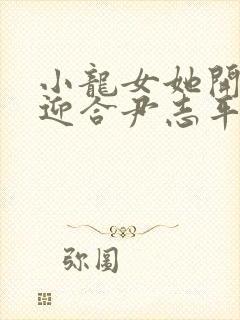 小龍女她開
迎合尹志平
弥圖